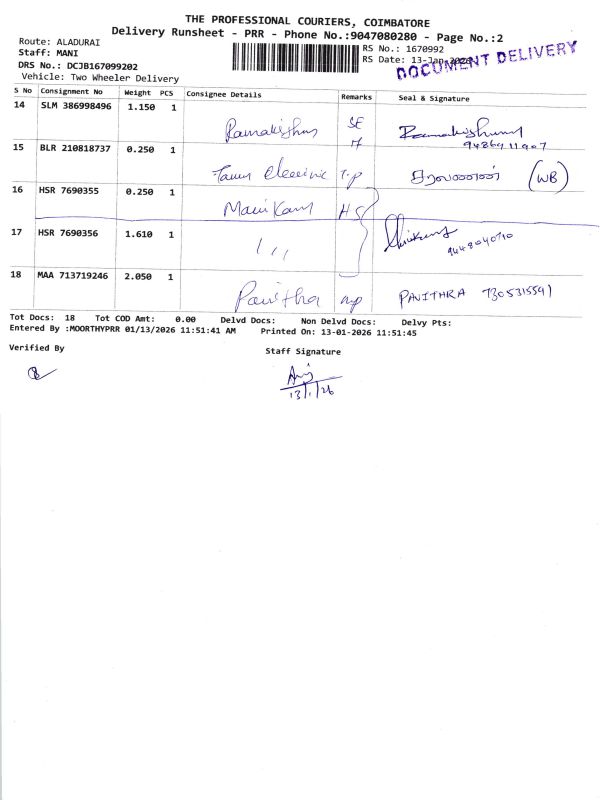 THE PROFESSIONAL COURIERS, COIMBATORE
Delivery Runsheet - PRR - Phone No.:9047080280 - Page No.:2
Route: ALADURAI
Staff: MANI
DRS No.: DCJB167099202
Vehicle: Two Wheeler Delivery
RS No.: 1670992
RS Date: 13-Jan-2026
DOCUMENT DELIVERY
S No Consignment No Weight PCS Consignee Details Remarks Seal & Signature
14 SLM 386998496 1.150 1
15 BLR 210818737 0.250 1 (WB)
16 HSR 7690355 0.250 1 Manikam HS
17 HSR 7690356 1.610 1
18 MAA 713719246 2.050 1 Pavithra PAVITHRA 7305315591
Tot Docs: 18 Tot COD Amt: 0.00 Delvd Docs: Non Delvd Docs: Delvy Pts:
Entered By :MOORTHYPRR 01/13/2026 11:51:41 AM Printed On: 13-01-2026 11:51:45
Verified By
Staff Signature
13/1/26